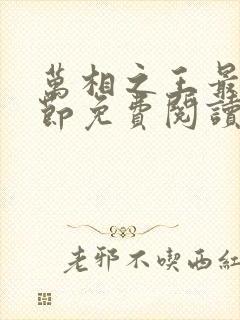 萬相之王最
節免費閱讀
老邪不喫西紅